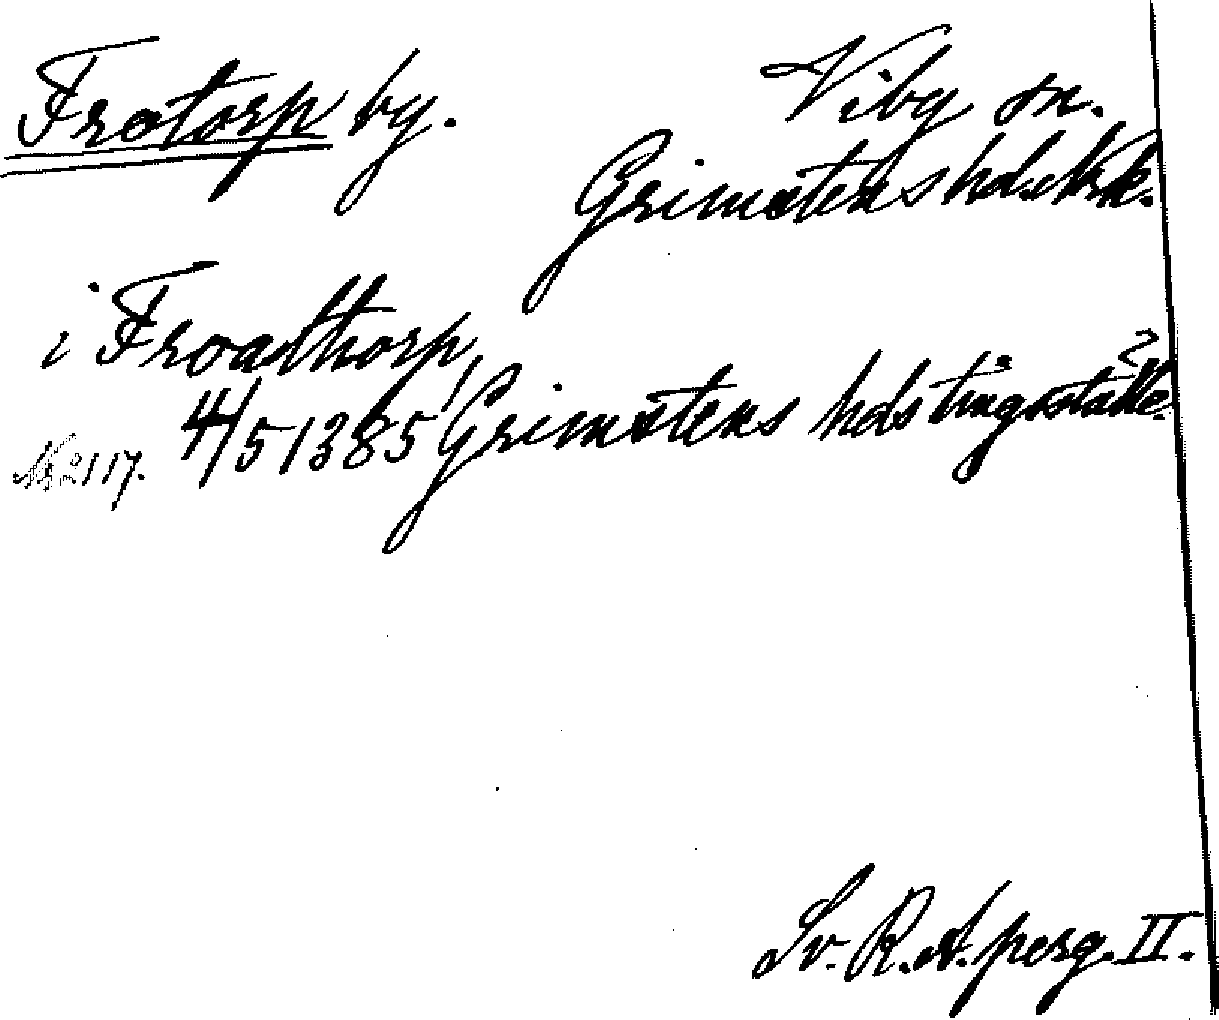 Frotorp by. Viby sn.
Grimstens hd. Nrk.
i Froasthorp,
4/5 1385 Grimstens hds tingsställe.
№ 2117.
Sv. R. A. perg. II.